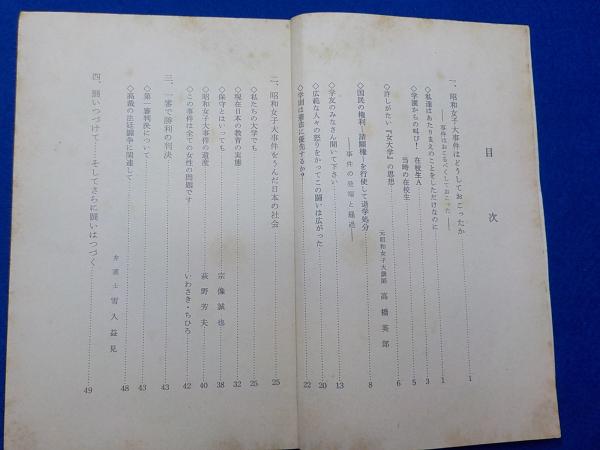 目次
一、昭和女子大事件はどうしておこったか……1
――事件はおこるべくしておこった――……1
◇私達はあたりまえのことをしただけなのに……3
◇学園からの叫び! 在校生A……5
当時の在校生……6
◇許しがたい『女大学』の思想……6
元昭和女子大講師 高橋英郎
◇国民の権利、請願権―を行使して退学処分……8
――事件の発端と経過――
◇学友のみなさん聞いて下さい……13
◇広範な人々の怒りをかってこの闘いは広がった……20
◇学則は憲法に優先するか?……22
二、昭和女子大事件をうんだ日本の社会……25
◇私たちの大学でも……25
◇現在日本の教育の実態……32
◇保守とはいっても 宗像誠也……38
◇昭和女子大事件の遺産 荻野芳夫……40
◇この事件は全ての女性の問題です いわさき・ちひろ……42
三、一審で勝利の判決……43
◇第一審判決について……43
◇高裁の法廷闘争に関連して……48
弁護士 雪入益見
四、闘いつづけて――そしてさらに闘いはつづく……49